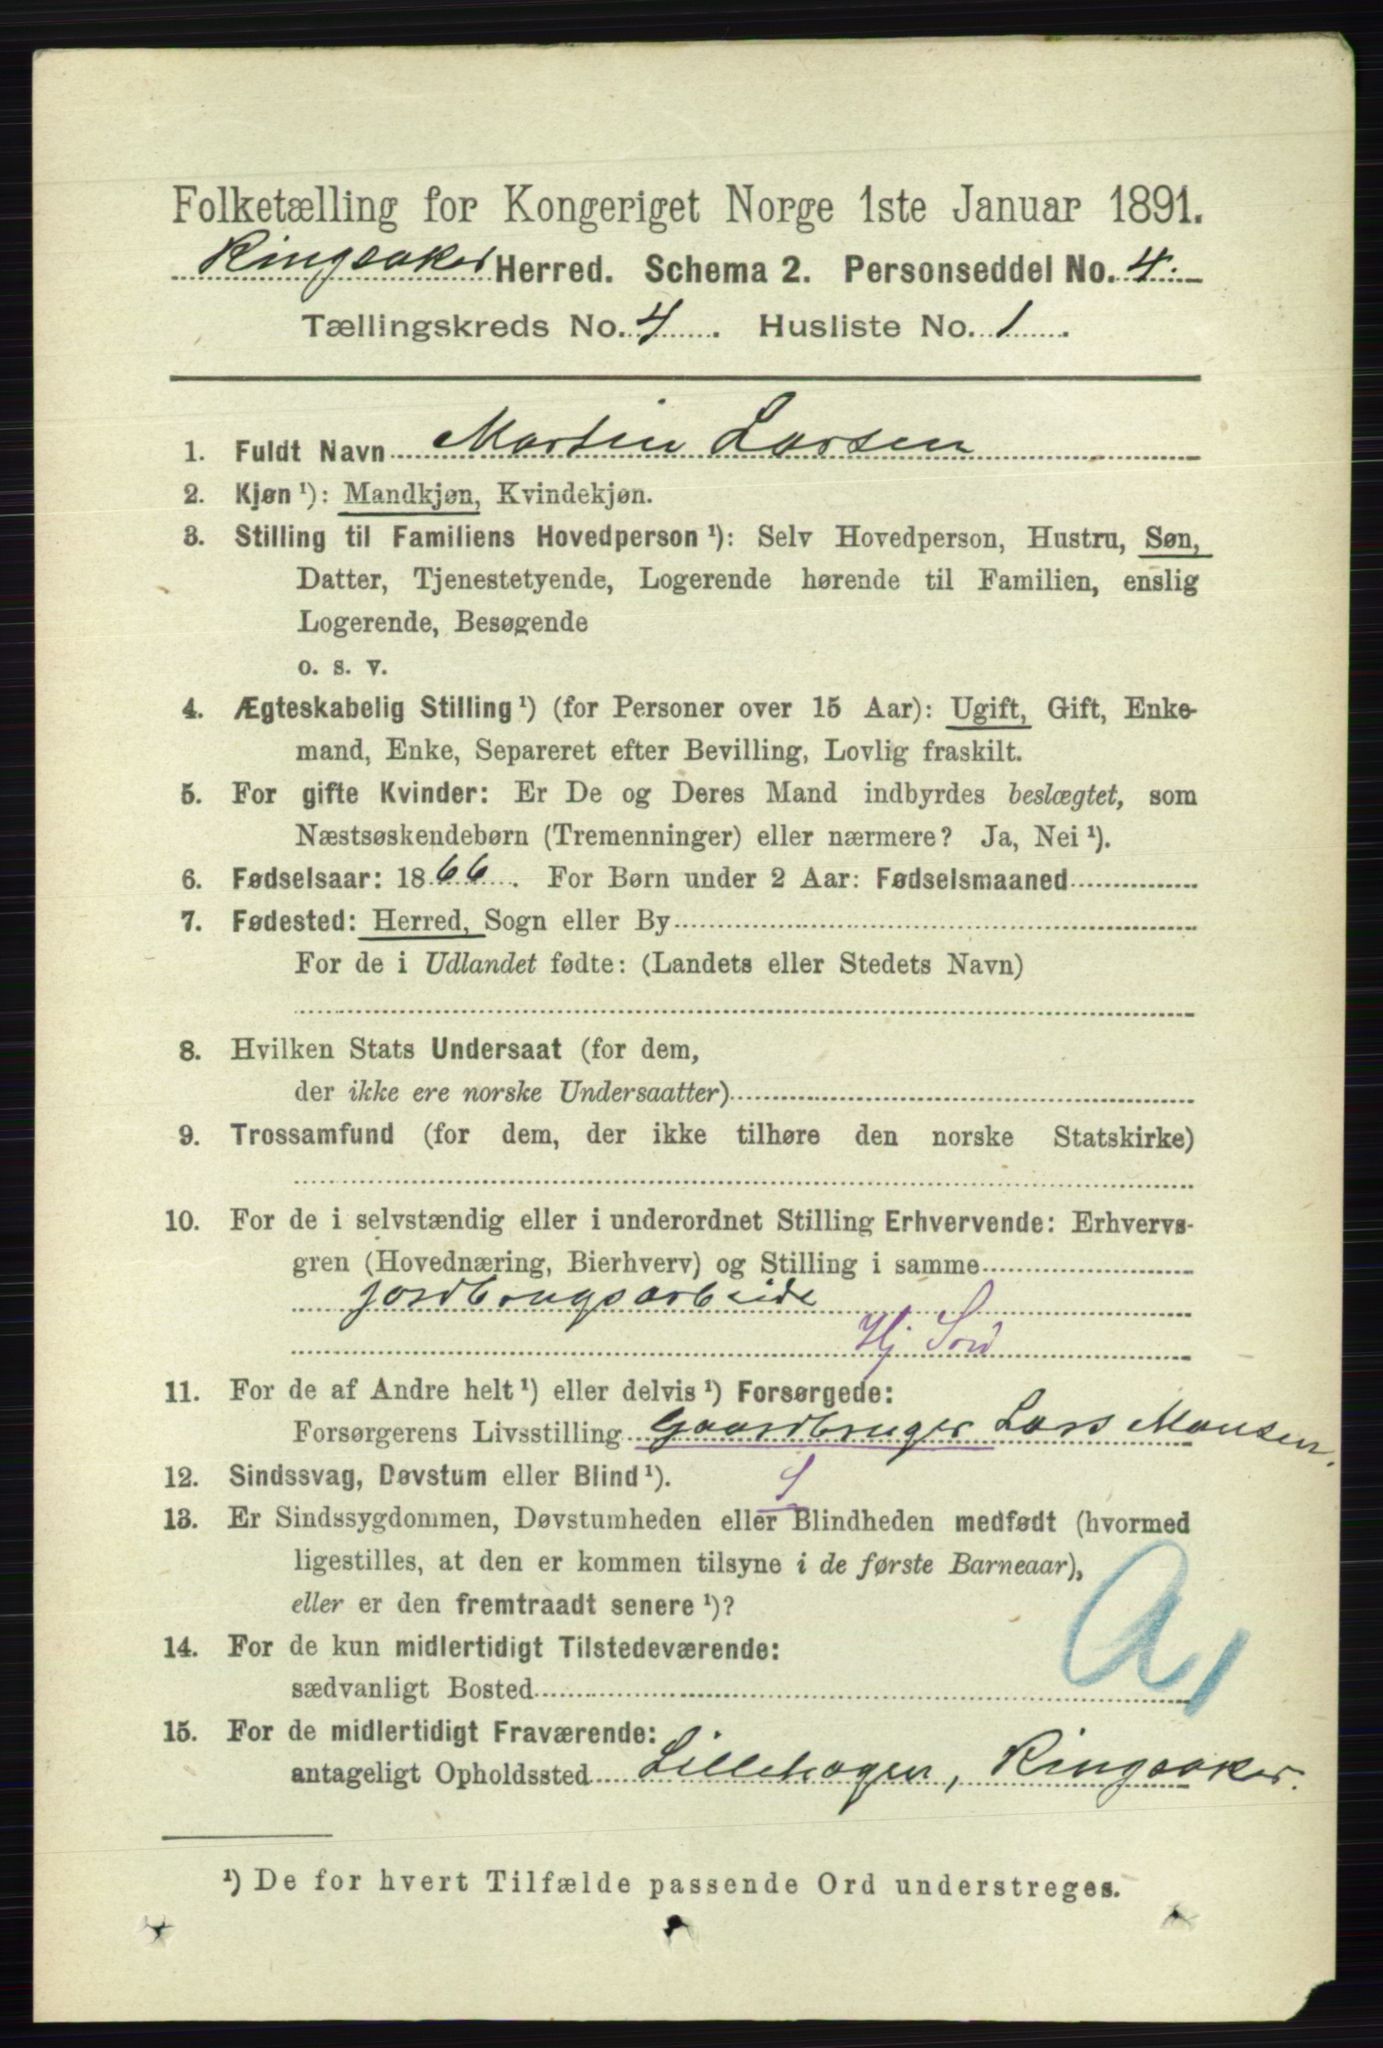 Folketælling for Kongeriget Norge 1ste Januar 1891.
Ringsaker Herred. Schema 2. Personseddel No. 4.
Tællingskreds No. 4. Husliste No. 1.
1. Fuldt Navn Martin Larsen
2. Kjøn ¹): Mandkjøn, Kvindekjøn.
3. Stilling til Familiens Hovedperson ¹): Selv Hovedperson, Hustru, Søn,
Datter, Tjenestetyende, Logerende hørende til Familien, enslig
Logerende, Besøgende
o. s. v.
4. Ægteskabelig Stilling ¹) (for Personer over 15 Aar): Ugift, Gift, Enke-
mand, Enke, Separeret efter Bevilling, Lovlig fraskilt.
5. For gifte Kvinder: Er De og Deres Mand indbyrdes beslægtet, som
Næstsøskendebørn (Tremenninger) eller nærmere? Ja, Nei ¹).
6. Fødselsaar: 1866. For Børn under 2 Aar: Fødselsmaaned
7. Fødested: Herred, Sogn eller By
For de i Udlandet fødte: (Landets eller Stedets Navn)
8. Hvilken Stats Undersaat (for dem,
der ikke ere norske Undersaatter)
9. Trossamfund (for dem, der ikke tilhøre den norske Statskirke)
10. For de i selvstændig eller i underordnet Stilling Erhvervende: Erhvervs-
gren (Hovednæring, Bierhverv) og Stilling i samme
jordbrugsarbeide
Hj Jord
11. For de af Andre helt ¹) eller delvis ¹) Forsørgede:
Forsørgerens Livsstilling Gaardbruger Lars Monsen.
12. Sindssvag, Døvstum eller Blind ¹).
13. Er Sindssygdommen, Døvstumheden eller Blindheden medfødt (hvormed
ligestilles, at den er kommen tilsyne i de første Barneaar),
eller er den fremtraadt senere ¹)?
14. For de kun midlertidigt Tilstedeværende:
sædvanligt Bosted
15. For de midlertidigt Fraværende:
antageligt Opholdssted Lillehagen, Ringsaker.
¹) De for hvert Tilfælde passende Ord understreges.